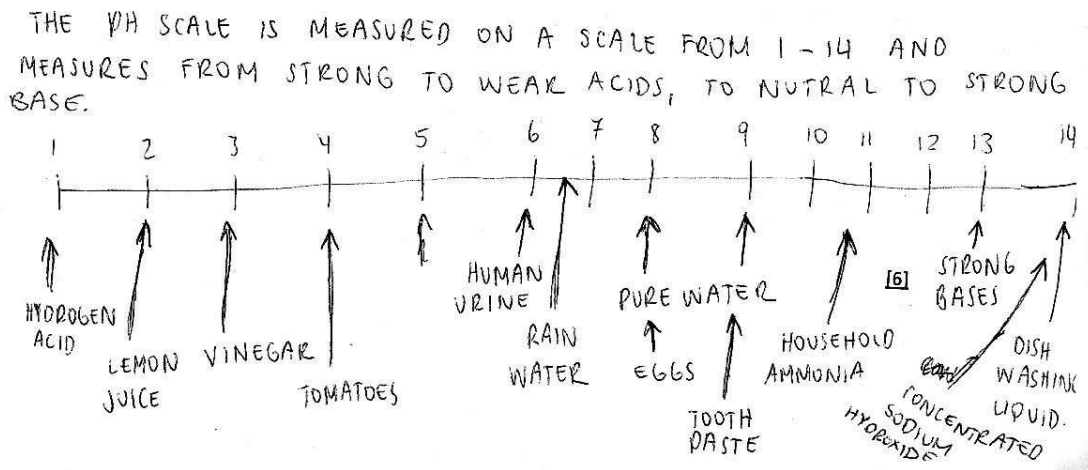 THE PH SCALE IS MEASURED ON A SCALE FROM 1 - 14 AND
MEASURES FROM STRONG TO WEAK ACIDS, TO NUTRAL TO STRONG
BASE.
1 2 3 4 5 6 7 8 9 10 11 12 13 14
HYDROGEN
ACID
LEMON
JUICE
VINEGAR
TOMATOES
HUMAN
URINE
RAIN
WATER
PURE WATER
EGGS
TOOTH
PASTE
HOUSEHOLD
AMMONIA
[6]
STRONG
BASES
CONCENTRATED
SODIUM
HYDROXIDE
DISH
WASHING
LIQUID.